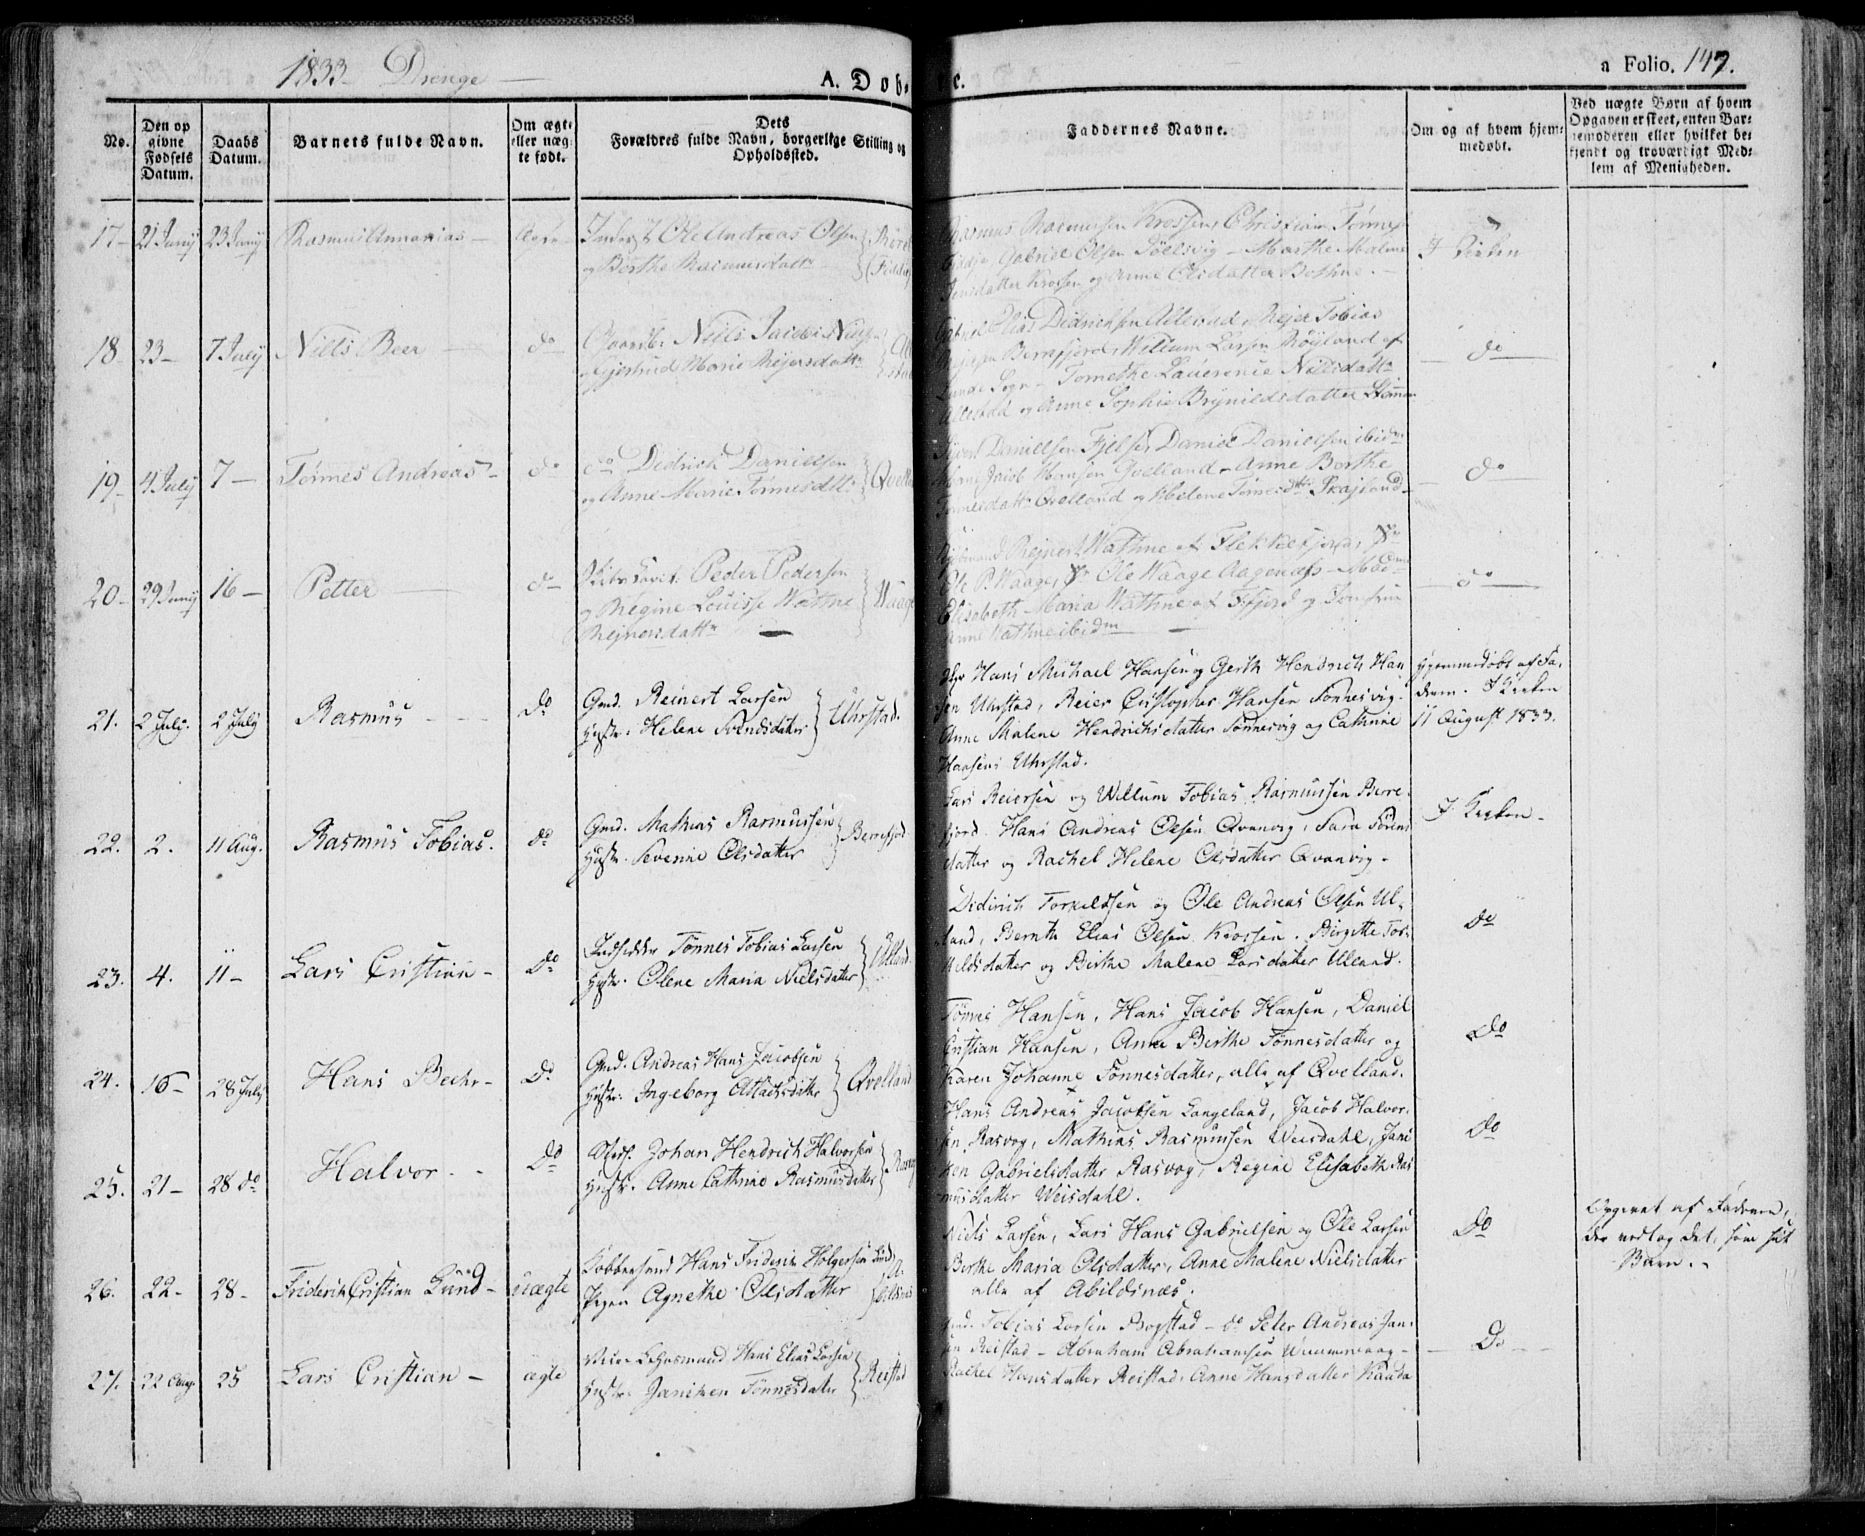 1833 Drenge
A. Døb-
e.
a Folio. 147.
No.
Den op
givne
Fødsels
Datum.
Daabs
Datum.
Barnets fulde Navn.
Om ægte
eller næg
te født.
Dets
Forældres fulde Navn, borgerlige Stilling og
Opholdssted.
Faddernes Navne.
Om og af hvem hjem-
medøbt.
Ved uægte Børn af hvem
Opgaven er skeet, enten Bar-
nemoderen eller hvilket be-
kjendt og troværdigt Med-
lem af Menigheden.
17 21 Junij 23 Junij Rasmus Annanias
Ole Andreas Olsen
og Berthe Rasmusdatr
Rasmus Rasmussen Krossen, Christian Tønnes
Gabriel Olsen Søllsvig - Marthe Malene
Jensdatter Krossen og Anne Olsdatter Bothne.
I Kirken
18 23 7 July Niels Beer do
Gaardb. Niels Jacob Niels
Gjertrud Marie Reiersdatr
Elias Didrichsen Allestad, Rejer Tobias
Berrefjord, Willum Larsen Røyland af
Lunde Sogn - Tomethe Laurence Nielsdatr
Allestad og Anne Sophie Brynildsdatter
do
19 4 July 7 Tønnes Andreas do
do Didrick Danielsen
og Anne Marie Tønnesdatr
Danielsen Fjelse, Daniel Danielsen ibidm
Jacob Hansen Qvelland - Anne Berthe
Tønnesdatr Qvelland og Helene Tønnesdtr
do
20 29 Junij 16 Petter do
Peder Pedersen
og Regine Louise Wathne
Rejnersdattr
Waage
Rejnert Wathne af Flekkefjord, Sr
Ole P. Waage, Sr Ole Waage Aagenæs - Mad
Elisabeth Maria Wathne af Ffjord og Jomfrue
Anne Wathne ibidm
do
21. 2 July. 2 July Rasmus do
Gmd. Reinert Larsen
Hustr. Helene Svendsdatter
Uhrstad.
Hans Michael Hansen og Gerth Hendrich Han
sen Uhrstad, Reier Cristopher Hansen Tønnesvig.
Anne Malene Hendrichsdatter Tønnesvig og Cathrine
Hansens Uhrstad.
Hjemmedøbt af Fa-
deren. I Kirken
11 August 1833.
22. 2. 11 Aug. Rasmus Tobias. do
Gmd. Mathias Rasmussen
Hustr. Severine Olsdatter
Berrefjord
Lars Reiersen og Willum Tobias Rasmussen Berre-
fjord. Hans Andreas Olsen Qvanvig, Sara Sørens
datter og Rachel Helene Olsdatter Qvanvig -
I Kirken -
23. 4. 11 - Lars Cristian - do
Indsidder Tønnes Tobias Larsen
Hustr. Olene Maria Nielsdatter
Ulland.
Didirich Torkildsen og Ole Andreas Olsen Ul-
land, Bernth Elias Olsen Krossen. Birgitte Tor-
kildsdatter og Birthe Malene Larsdatter Ulland.
do
24. 16 - 28 July Hans Beehr - Do
Gmd. Andreas Hans Jacobsen
Hustr. Ingeborg Atlachsdatter
Qvelland
Tønnes Hansen, Hans Jacob Hansen, Daniel
Cristian Hansen, Anne Birthe Tønnesdatter og
Karen Johanne Tønnesdatter, alle af Qvelland.
do
25. 21 - 28 do Halvor. Do
Johan Hendrich Halvorsen
Hustr. Anne Cathrine Rasmusdatter
Hans Andreas Jacobsen Langeland, Jacob Halvor-
sen Rasvog, Mathias Rasmussen Weisdahl, Jani
ken Gabrielsdatter Rasvog, Regine Elisabeth Ras
musdatter Weisdahl.
do
26. 22 - 28 - Friderich Cristian Lund - uægte
Kobbersmed Hans Friderich Holgersen Lund
Pigen Agnethe Olsdatter
Niels Larsen, Lars Hans Gabrielsen og Ole Larsen
Berthe Maria Olsdatter, Anne Malene Nielsdatter
alle af Abildsnæs.
do
Opgivet af Faderen,
der vedtog det, som sit
Barn.
27. 22 Aug. 25 Lars Cristian - ægte
Husmand Hans Elias Larsen
Hustr. Janiken Tønnesdatter
Reistad
Gmd. Tobias Larsen Bogstad - do Peter Andreas Jan-
sen Reistad - Abraham Abrahamsen
Rachel Hansdatter Reistad, Anne Hansdatter
Do